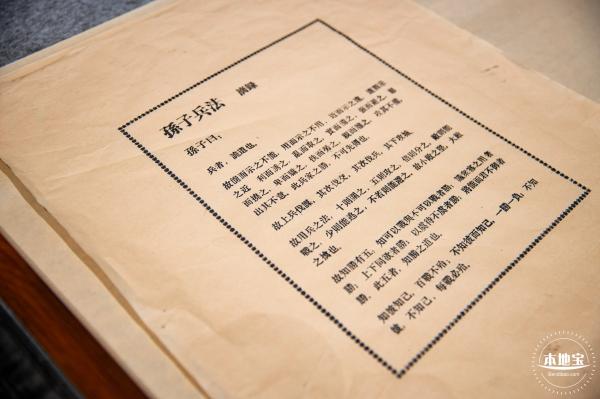 孫子兵法 摘録
孫子曰：
兵者，詭道也。
故能而示之不能，用而示之不用，近而示之遠，遠而示
之近，利而誘之，亂而取之，實而備之，強而避之，怒
而撓之，卑而驕之，佚而勞之，親而離之，攻其不備，
出其不意，此兵家之勝，不可先傳也。
故上兵伐謀，其次伐交，其次伐兵，其下攻城。
故用兵之法，十則圍之，五則攻之，倍則分之，敵則能
戰之，少則能逃之，不若則能避之，故小敵之堅，大敵
之擒也。
故知勝有五，知可以戰與不可以戰者勝，識衆寡之用者
勝，上下同欲者勝，以虞待不虞者勝，將能而君不御者
勝，此五者，知勝之道也。
知彼知己，百戰不殆，不知彼而知己，一勝一負，不知
彼，不知己，每戰必殆。
本地宝
Bendibao.com